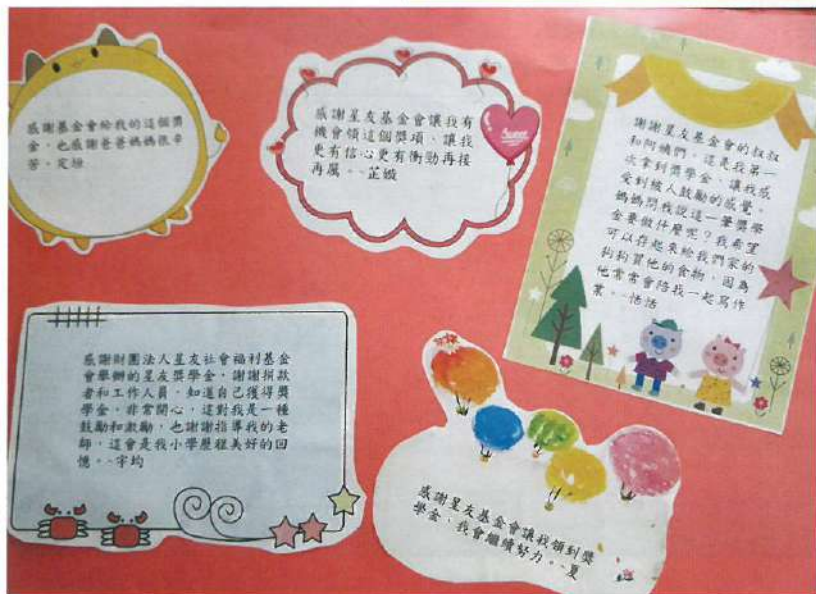 感謝基金會給我的這個獎
金，也感謝爸爸媽媽很辛
苦。
感謝星友基金會讓我有
機會領這個獎項、讓我
更有信心更有衝勁再接
再厲。~芷嫙
Sweet
謝謝星友基金會的叔叔
和阿姨們。這是我第一
次拿到獎學金、讓我感
受到被人鼓勵的感覺。
媽媽問我說這一筆獎學
金要做什麼呢？我希望
可以存起來給我們家的
狗狗買他的食物，因為
他常常會陪我一起寫作
業。~恬恬
感謝財團法人星友社會福利基金
會舉辦的星友獎學金，謝謝捐款
者和工作人員，知道自己獲得獎
學金，非常開心，這對我是一種
鼓勵和激勵，也謝謝指導我的老
師，這會是我小學歷程美好的回
憶。~宇均
感謝星友基金會讓我領到獎
學金、我會繼續努力。~夏